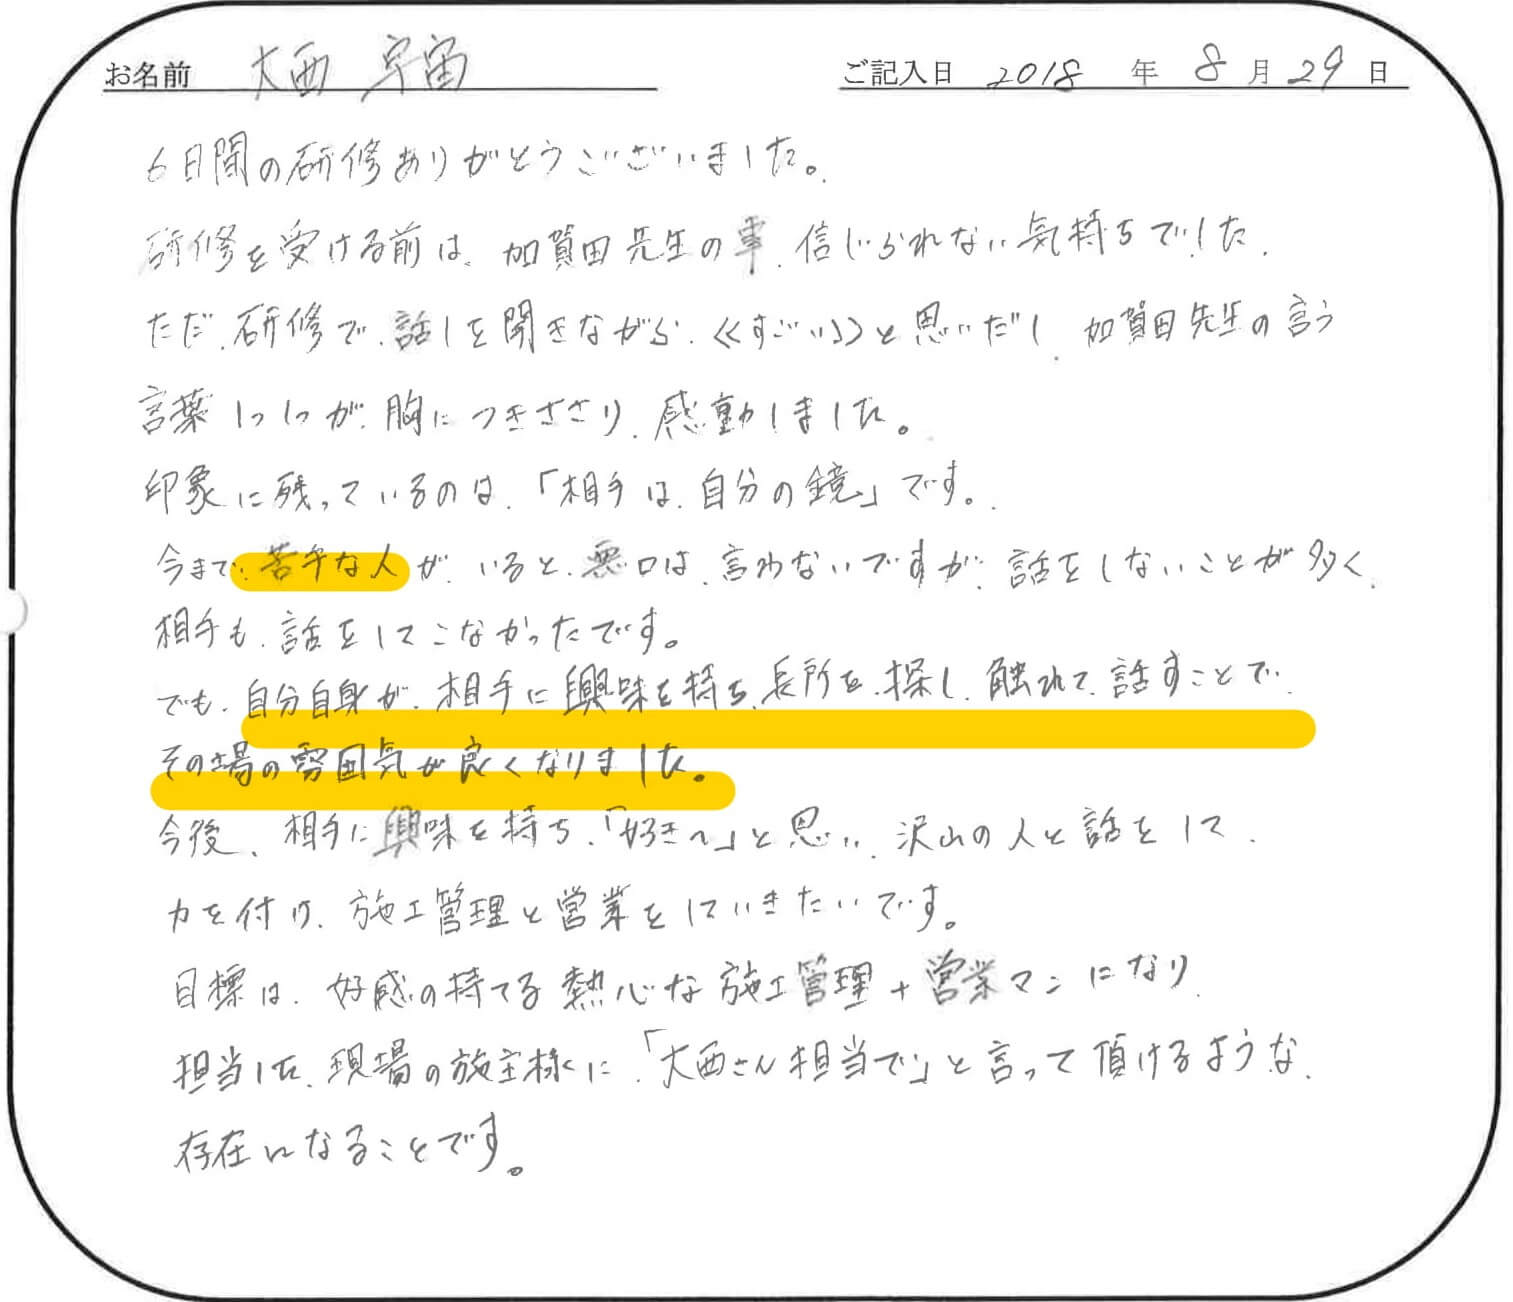 お名前 大西 宇宙 ご記入日 2018 年 8 月 29 日
6日間の研修ありがとうございました。
研修を受ける前は、加賀田先生の事、信じられない気持ちでした、
ただ、研修で、話しを聞きながら、≪すごい≫と思いだし、加賀田先生の言う
言葉1つ1つが、胸につきささり、感動しました。
印象に残っているのは、「相手は、自分の鏡」です。
今まで、苦手な人が、いると、悪口は、言わないですが、話をしないことが多く、
相手も、話をしてこなかったです。
でも、自分自身が、相手に興味を持ち、長所を、探し、触れて、話すことで、
その場の雰囲気が良くなりました。
今後、相手に興味を持ち、「好き〜」と思い、沢山の人と話をして、
力を付け、施工管理と営業をしていきたいです。
目標は、好感の持てる熱心な施工管理+営業マンになり、
担当した、現場の施主様に、「大西さん担当で」と言って頂けるような、
存在になることです。